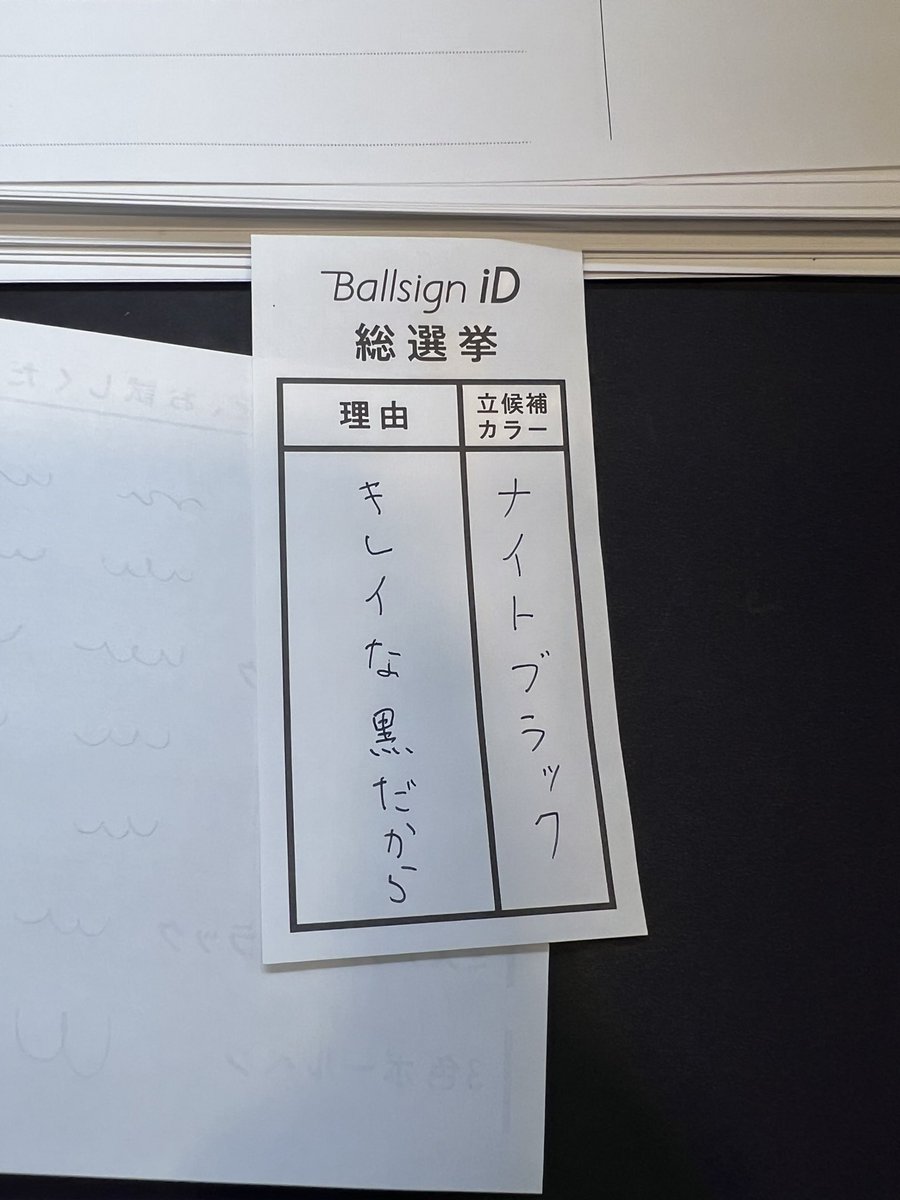 Ballsign iD
総選挙
立候補
カラー
ナイトブラック
理由
キレイな黒だから